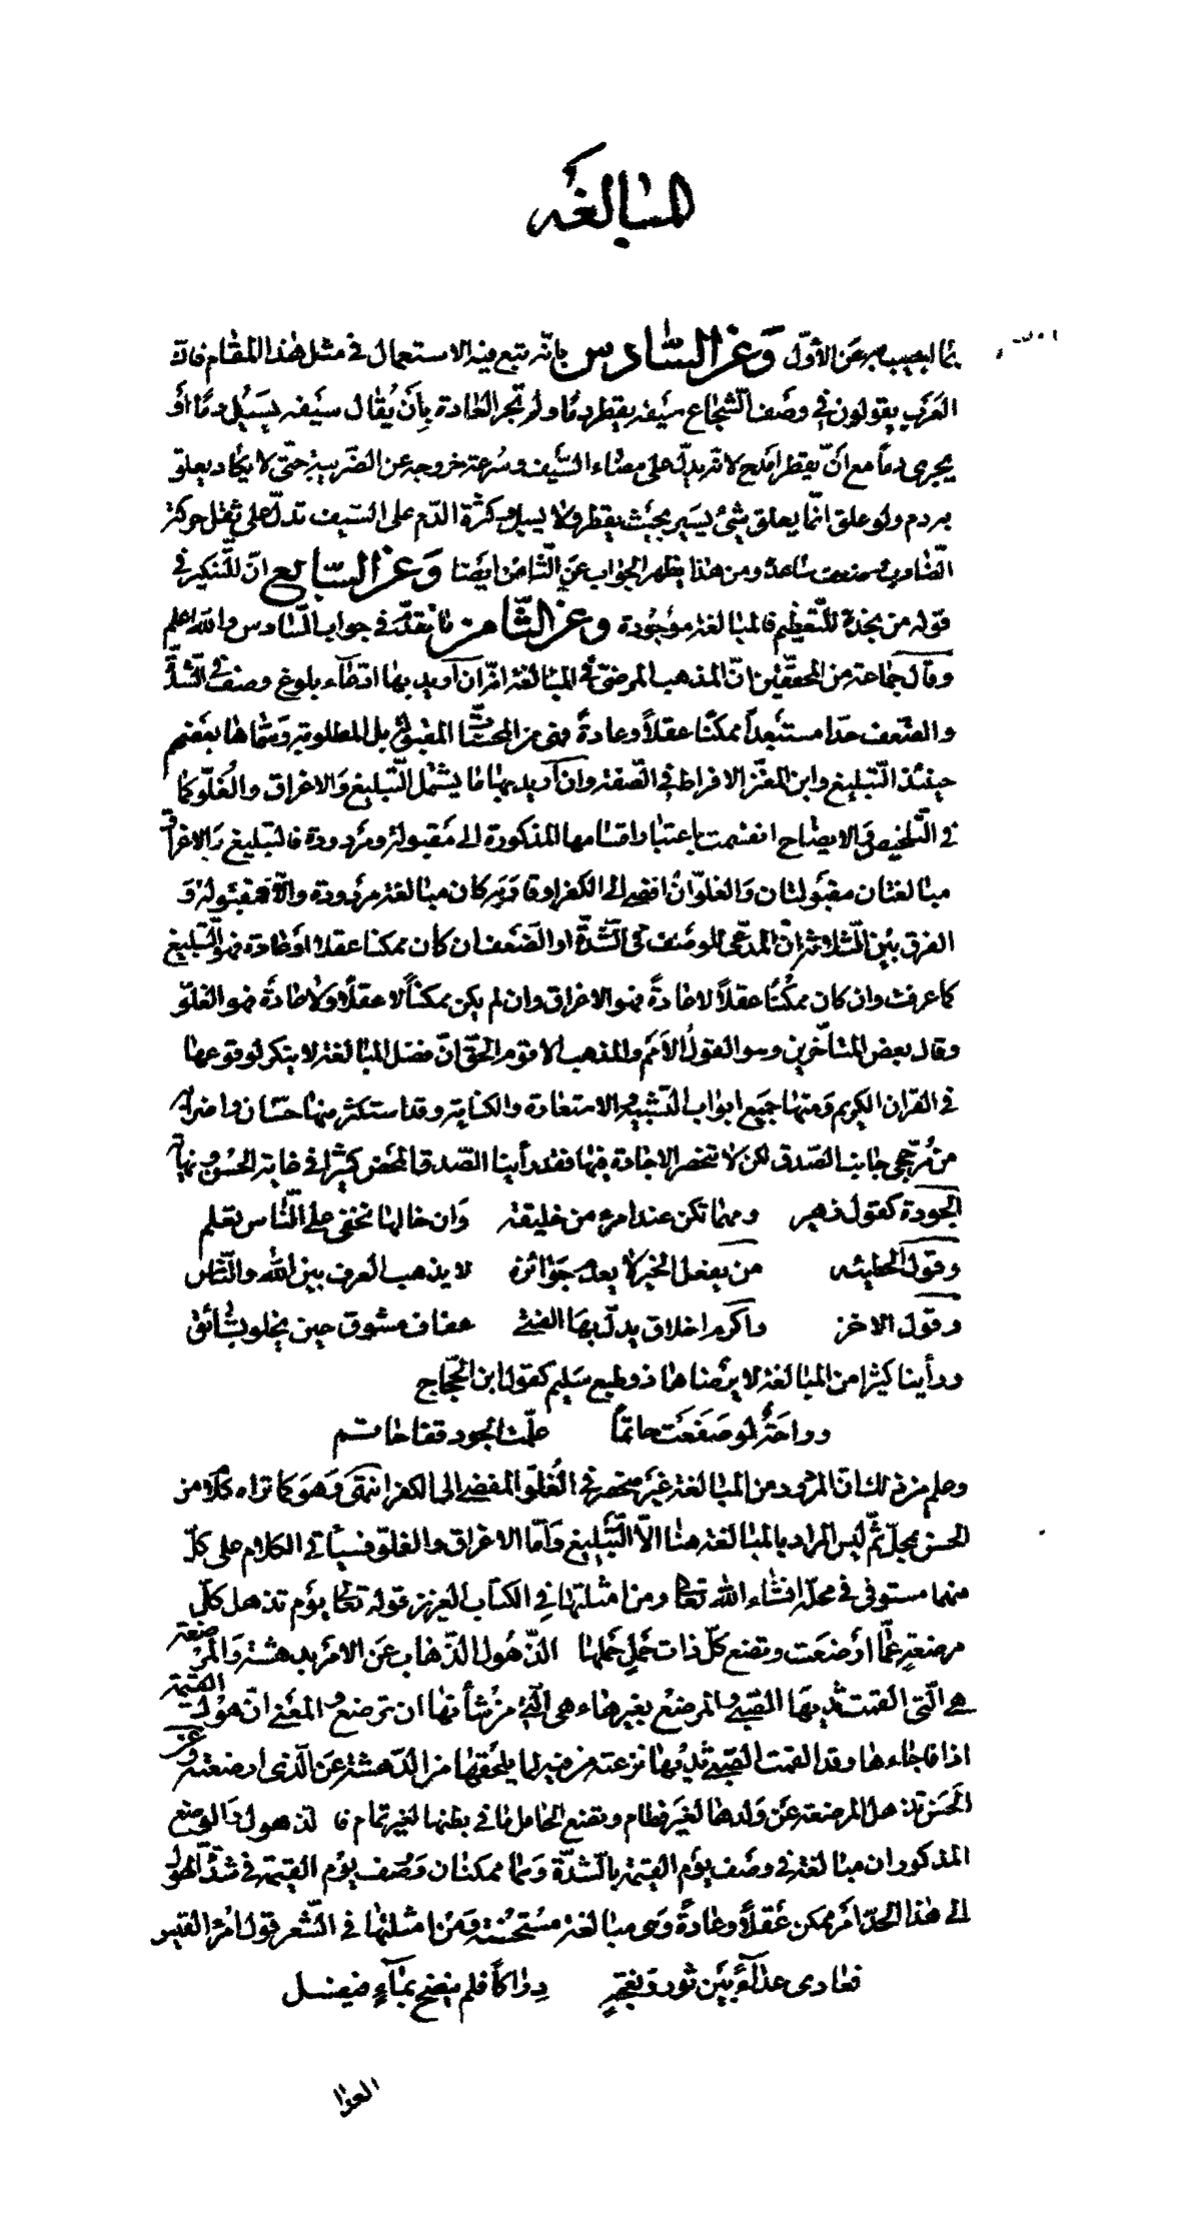 المبالغة
بما اجيب به عن الأوّل وعن السّادس بانّه تتبع فيه الاستعمال في مثل هذا المقام فانّ
العرب يقولون في وصف الشّجاع سيفه يقطر دمًا ولم تجر العادة بأن يُقال سيفه يسيل دمًا أو
يجري دمًا مع انّ يقطر املح لانّه يدلّ على مضاء السّيف وسرعة خروجه عن الضّريبة حتّى لا يكاد يعلق
به دم ولو علق انّما يعلق شيئ يسير بحيث يقطر ولا يسيل وكثرة الدّم على السّيف تدلّ على ثقل حركة
الضّارب وضعف ساعده ومن هذا يظهر الجواب عن الثّامن ايضا وعن السّابع انّ التّنكير في
قوله من نجدة للتّعظيم فالمبالغة موجودة وعن الثّامن ما تقدّم في جواب السّادس والله اعلم
وقال جماعة من المحقّقين انّ المذهب المرضيّ في المبالغة انّه ان أريد بها ادّعاء بلوغ وصف في الشّدّة
والضّعف حدا مستبعدا ممكنا عقلاً وعادةً فهى من المحسّنات المقبولة بل المطلوبة وسمّاها بعضهم
حينئذ التّبليغ وابن المعتزّ الافراط في الصّفة وان أريد بها ما يشمل التّبليغ والاغراق والغلوّ كما
في التّلخيص والايضاح انقسمت باعتبار اقسامها المذكورة الى مقبولة ومردودة فالتبليغ والاغراق
مبالغتان مقبولتان والغلوّ ان افضى الى الكفر او قاربه كان مبالغة مردودة والّا فمقبولة و
الفرق بين الثّلاثة انّ المدّعى للوصف في الشّدّة او الضّعف ان كان ممكنا عقلا وعادة فهو التّبليغ
كما عرفت وان كان ممكنًا عقلاً لا عادةً فهو الاغراق وان لم يكن ممكناً لا عقلاً ولا عادةً فهو الغلوّ
وقال بعض المتأخّرين وهو القول الأمم والمذهب الاقوم الحقّ انّ فضل المبالغة لا ينكر لوقوعها
في القرآن الكريم ومنها جميع ابواب التّشبيه والاستعارة والكناية وقد استكثر منها حسّان واضرابه
من مُرجّحي جانب الصّدق لكن لا تنحصر الاجادة فيها فقد رأينا الصّدق المحض كثيرا في غاية الحسن ونهاية
الجودة كقول زهير ومهما تكن عند امرئ من خليقة وان خالها تخفى على النّاس تعلم
وقول الحطيئة من يفعل الخير لا يعدم جوائزه لا يذهب العرف بين الله والنّاس
وقول الاخر واكرم اخلاق يدلّ بها الفتى عفاف مشوق حين يخلو بشائق
ورأينا كثيرا من المبالغة لا يرضاها ذو طبع سليم كقول ابن الحجّاج
وراحةٌ لو صفعت حاتمًا علّمت الجود قفا حاتم
وعلم من ذلك انّ المردود من المبالغة غير منحصر في الغلوّ المفضي الى الكفر انتهى وهو كما تراه كلام من
الحسن بمحلّ ثمّ ليس المراد بالمبالغة هنا الّا التّبليغ وأمّا الاغراق والغلوّ فسيأتي الكلام على كلّ
منهما مستوفى في محلّه انشاء الله تعالى ومن امثلتها في الكتاب العزيز قوله تعالى يوم تذهل كلّ
مرضعةٍ عمّا أرضعت وتضع كلّ ذات حمل حملها الذّهول الذّهاب عن الامر بدهشة والمرضعة
هي الّتى القمت ثديها الصّبي والمرضع بغير هاء هي الّتي من شأنها ان ترضع والمعنى انّ هول القيمة
اذا فاجاءها وقد القمت الصّبي ثديها نزعته من فيه لما يلحقها من الدّهشة عن الّذى ارضعته وعن
الحسن تذهل المرضعة عن ولدها لغير فطام وتضع الحامل ما في بطنها لغير تمام فالذهول والوضع
المذكوران مبالغة في وصف يوم القيمة بالشّدّة وهما ممكنان ووصف يوم القيمة في شدّة الهول
الى هذا الحدّ امر ممكن عقلاً وعادةً وهى مبالغة مستحسنة ومن امثلتها في الشّعر قول امرء القيس
فعادى عداءً بين ثور ونعجةٍ دراكًا فلم ينضح بماءٍ فيغسل
العدا